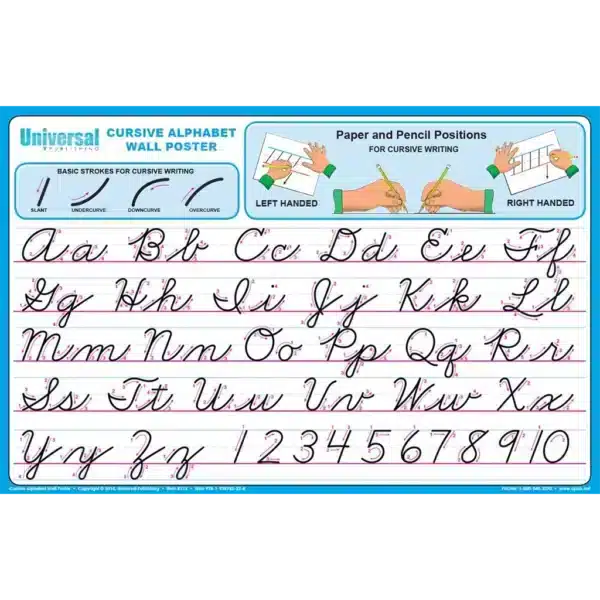 Universal
PUBLISHING
CURSIVE ALPHABET
WALL POSTER
BASIC STROKES FOR CURSIVE WRITING
SLANT UNDERCURVE DOWNCURVE OVERCURVE
Paper and Pencil Positions
FOR CURSIVE WRITING
LEFT HANDED
RIGHT HANDED
Aa Bb Cc Dd Ee Ff
Gg Hh Ii Jj Kk Ll
Mm Nn Oo Pp Qq Rr
Ss Tt Uu Vv Ww Xx
Yy Zz 1 2 3 4 5 6 7 8 9 10
Cursive Alphabet Wall Poster • Copyright © 2010, Universal Publishing